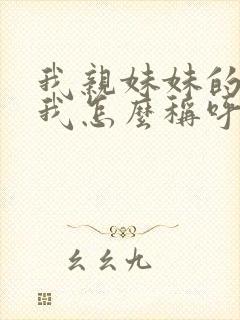 我親妹妹的
我怎麼稱呼
幺幺九